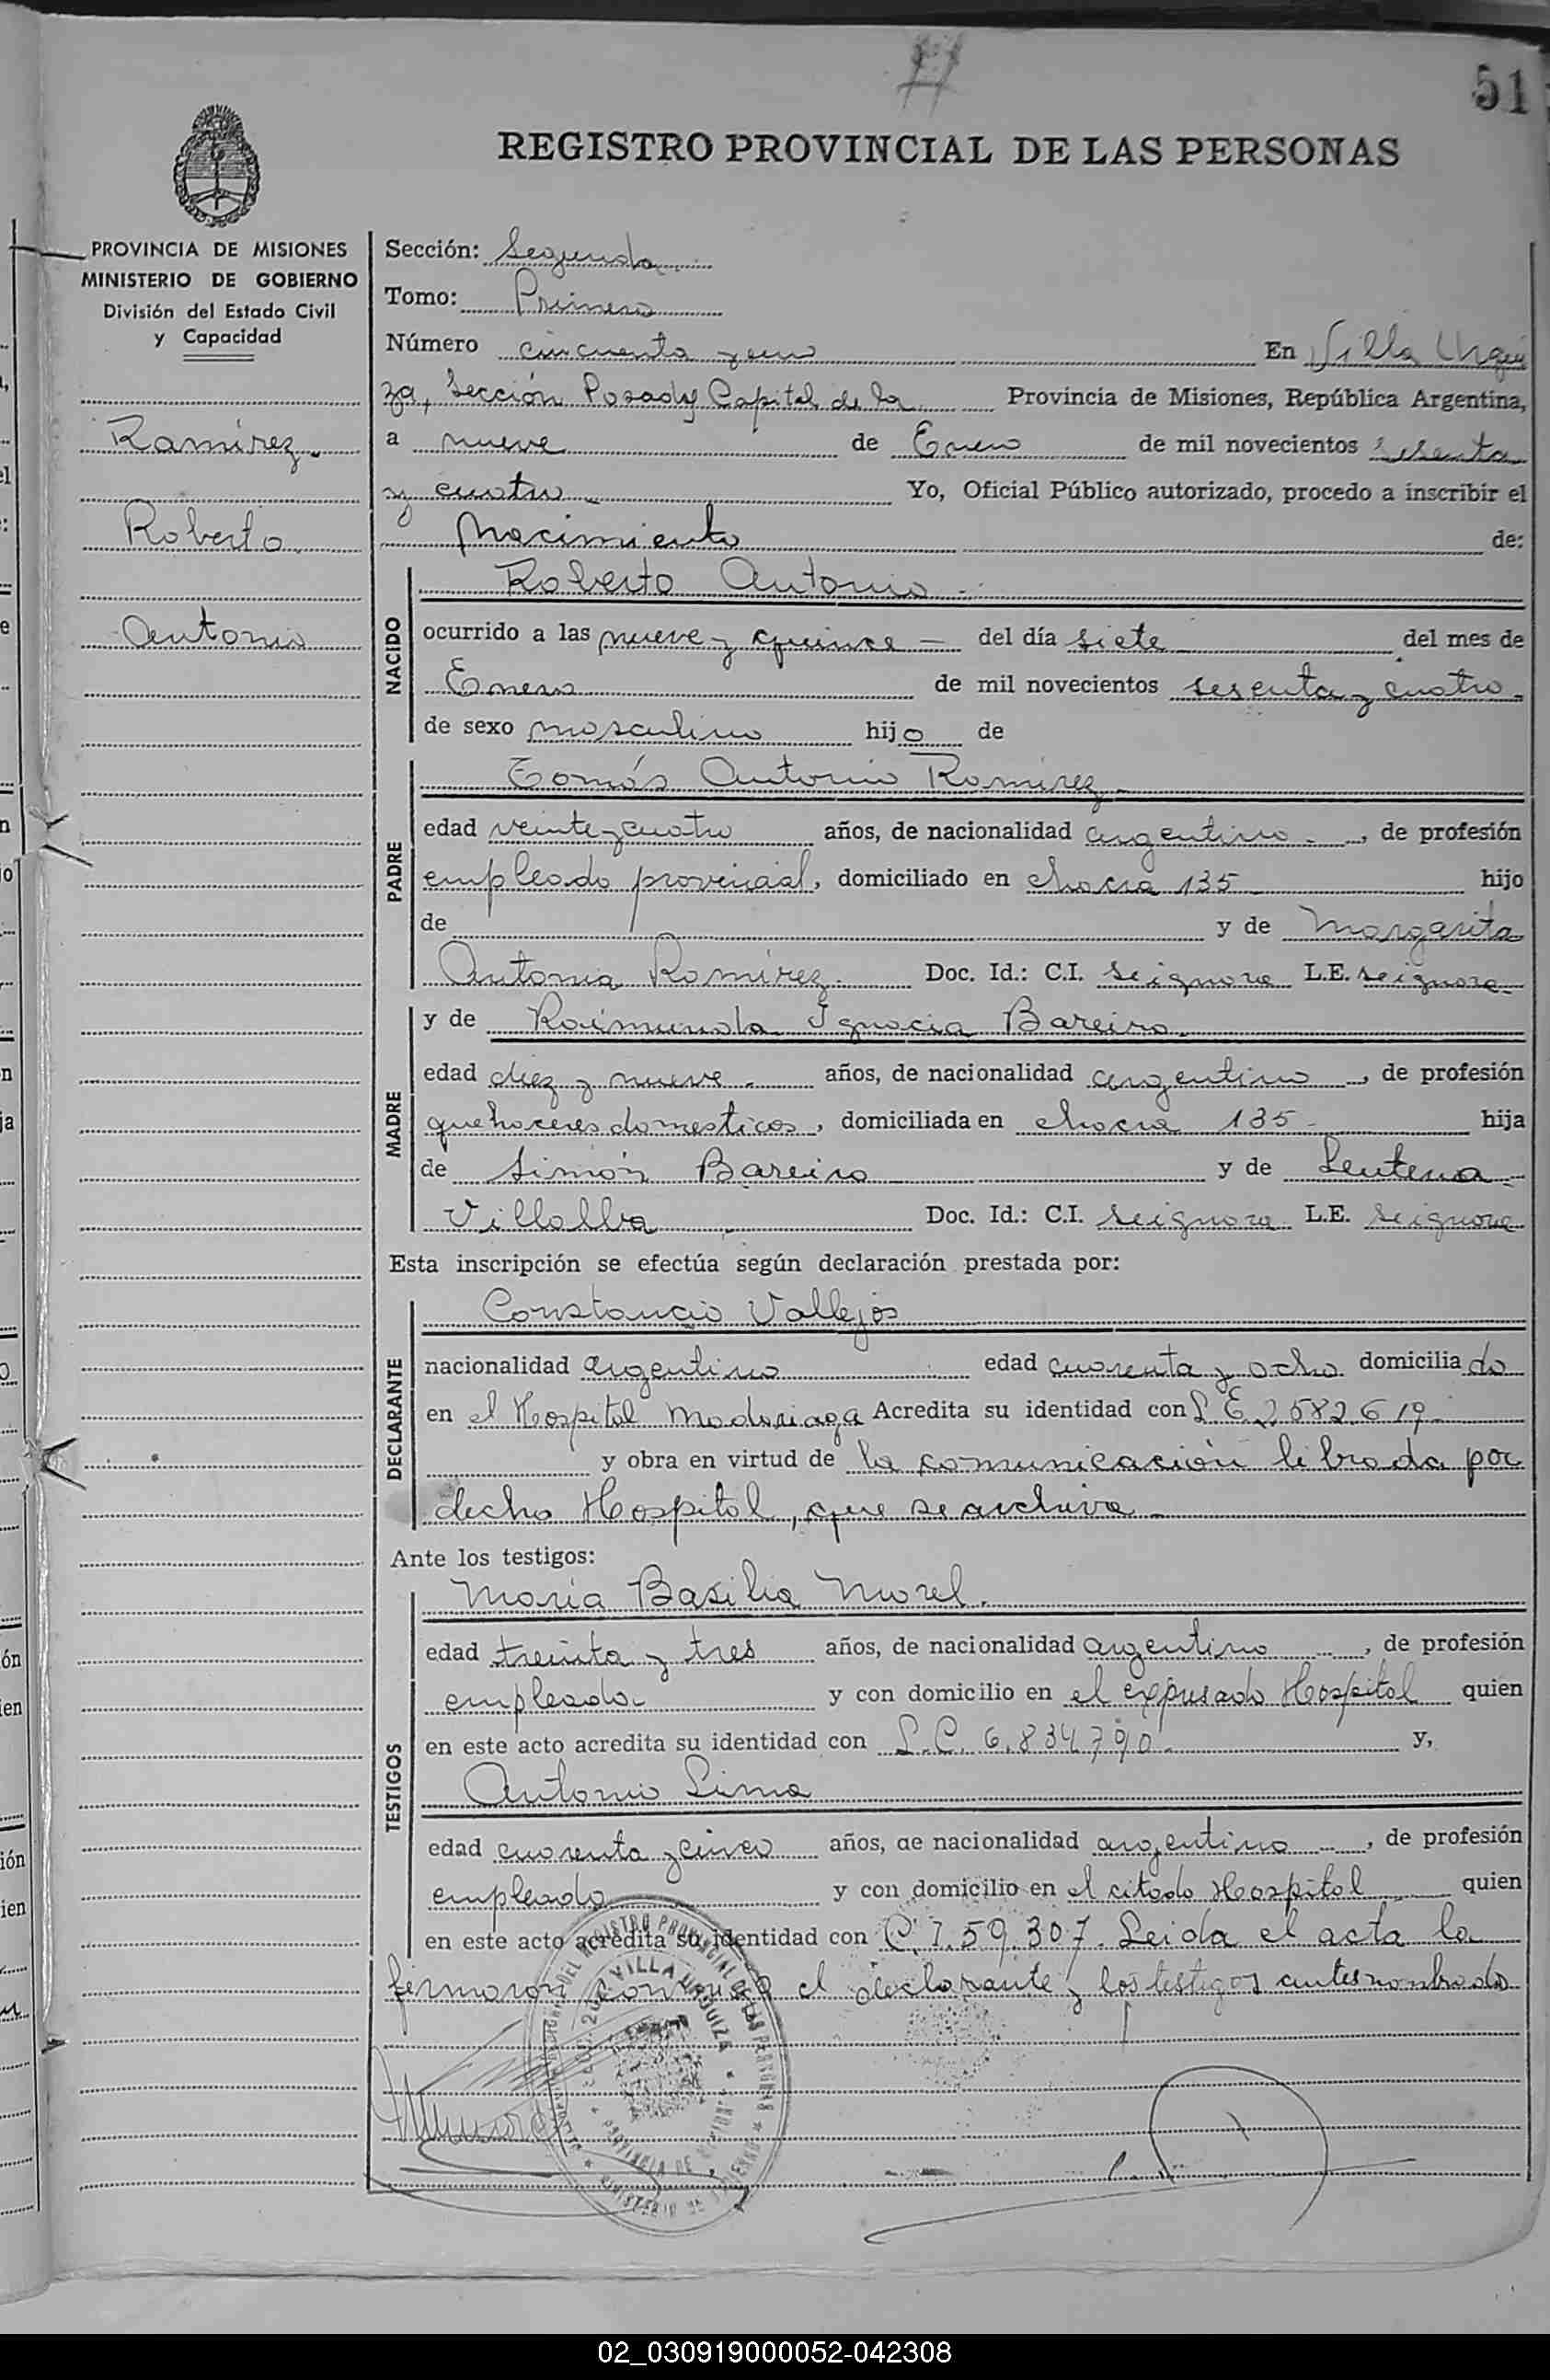 51
REGISTRO PROVINCIAL DE LAS PERSONAS
PROVINCIA DE MISIONES
MINISTERIO DE GOBIERNO
División del Estado Civil
y Capacidad
Ramírez
Roberto
Antonio
Sección: Segunda
Tomo: Primero
Número cincuenta y uno En Villa Urqui
za, Sección Posadas Capital de la Provincia de Misiones, República Argentina,
a nueve de Enero de mil novecientos sesenta
y cuatro Yo, Oficial Público autorizado, procedo a inscribir el
Nacimiento de:
NACIDO
Roberto Antonio
ocurrido a las nueve y quince del día siete del mes de
Enero de mil novecientos sesenta y cuatro
de sexo masculino hijo de
PADRE
Tomás Antonio Ramírez
edad veinte y cuatro años, de nacionalidad argentino, de profesión
empleado provincial, domiciliado en chacra 135 hijo
de y de Margarita
Antonia Ramírez Doc. Id.: C.I. se ignora L.E. se ignora
MADRE
y de Raimunda Ignacia Bareiro
edad diez y nueve años, de nacionalidad argentina, de profesión
quehaceres domesticos, domiciliada en chacra 135 hija
de Simón Bareiro y de
Villalba Doc. Id.: C.I. se ignora L.E. se ignora
Esta inscripción se efectúa según declaración prestada por:
DECLARANTE
Constancio Vallejos
nacionalidad argentino edad cuarenta y ocho domiciliado
en el Hospital Madariaga Acredita su identidad con L.E. 2582619
y obra en virtud de la comunicación librada por
dicho Hospital, que se archiva
Ante los testigos:
TESTIGOS
María Basilia Morel
edad treinta y tres años, de nacionalidad argentina, de profesión
empleada y con domicilio en el expresado Hospital quien
en este acto acredita su identidad con L.C. 6.834.790 y,
Antonio Lima
edad cuarenta y cinco años, de nacionalidad argentino, de profesión
empleado y con domicilio en el citado Hospital quien
en este acto acredita su identidad con C.I. 59.307. Leida el acta la
firmaron conmigo el declarante y los testigos antes nombrado
VILLA URQUIZA
02_030919000052-042308